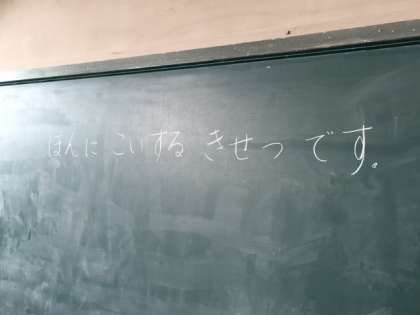 ほんに こいする きせつ です。